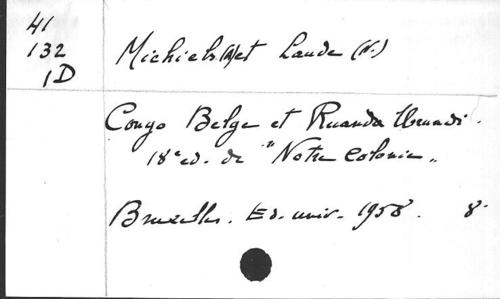 41
132
1D
Michiels (A) et Laude (N.)
Congo Belge et Ruanda Urundi.
18e ed. de "Notre Colonie"
Bruxelles. Ed. univ. 1958. 8°